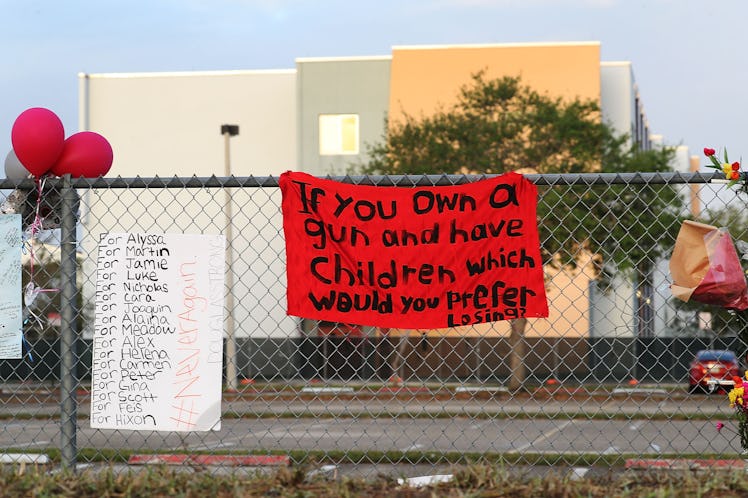 For Alyssa
For Martin
For Jamie
For Luke
For Nicholas
For Cara
For Joaquin
For Alaina
For Meadow
For Alex
For Helena
For Carmen
For Peter
For Gina
For Scott
For Feis
For Hixon
#NeverAgain
If you own a
gun and have
Children which
would you prefer
Losing?